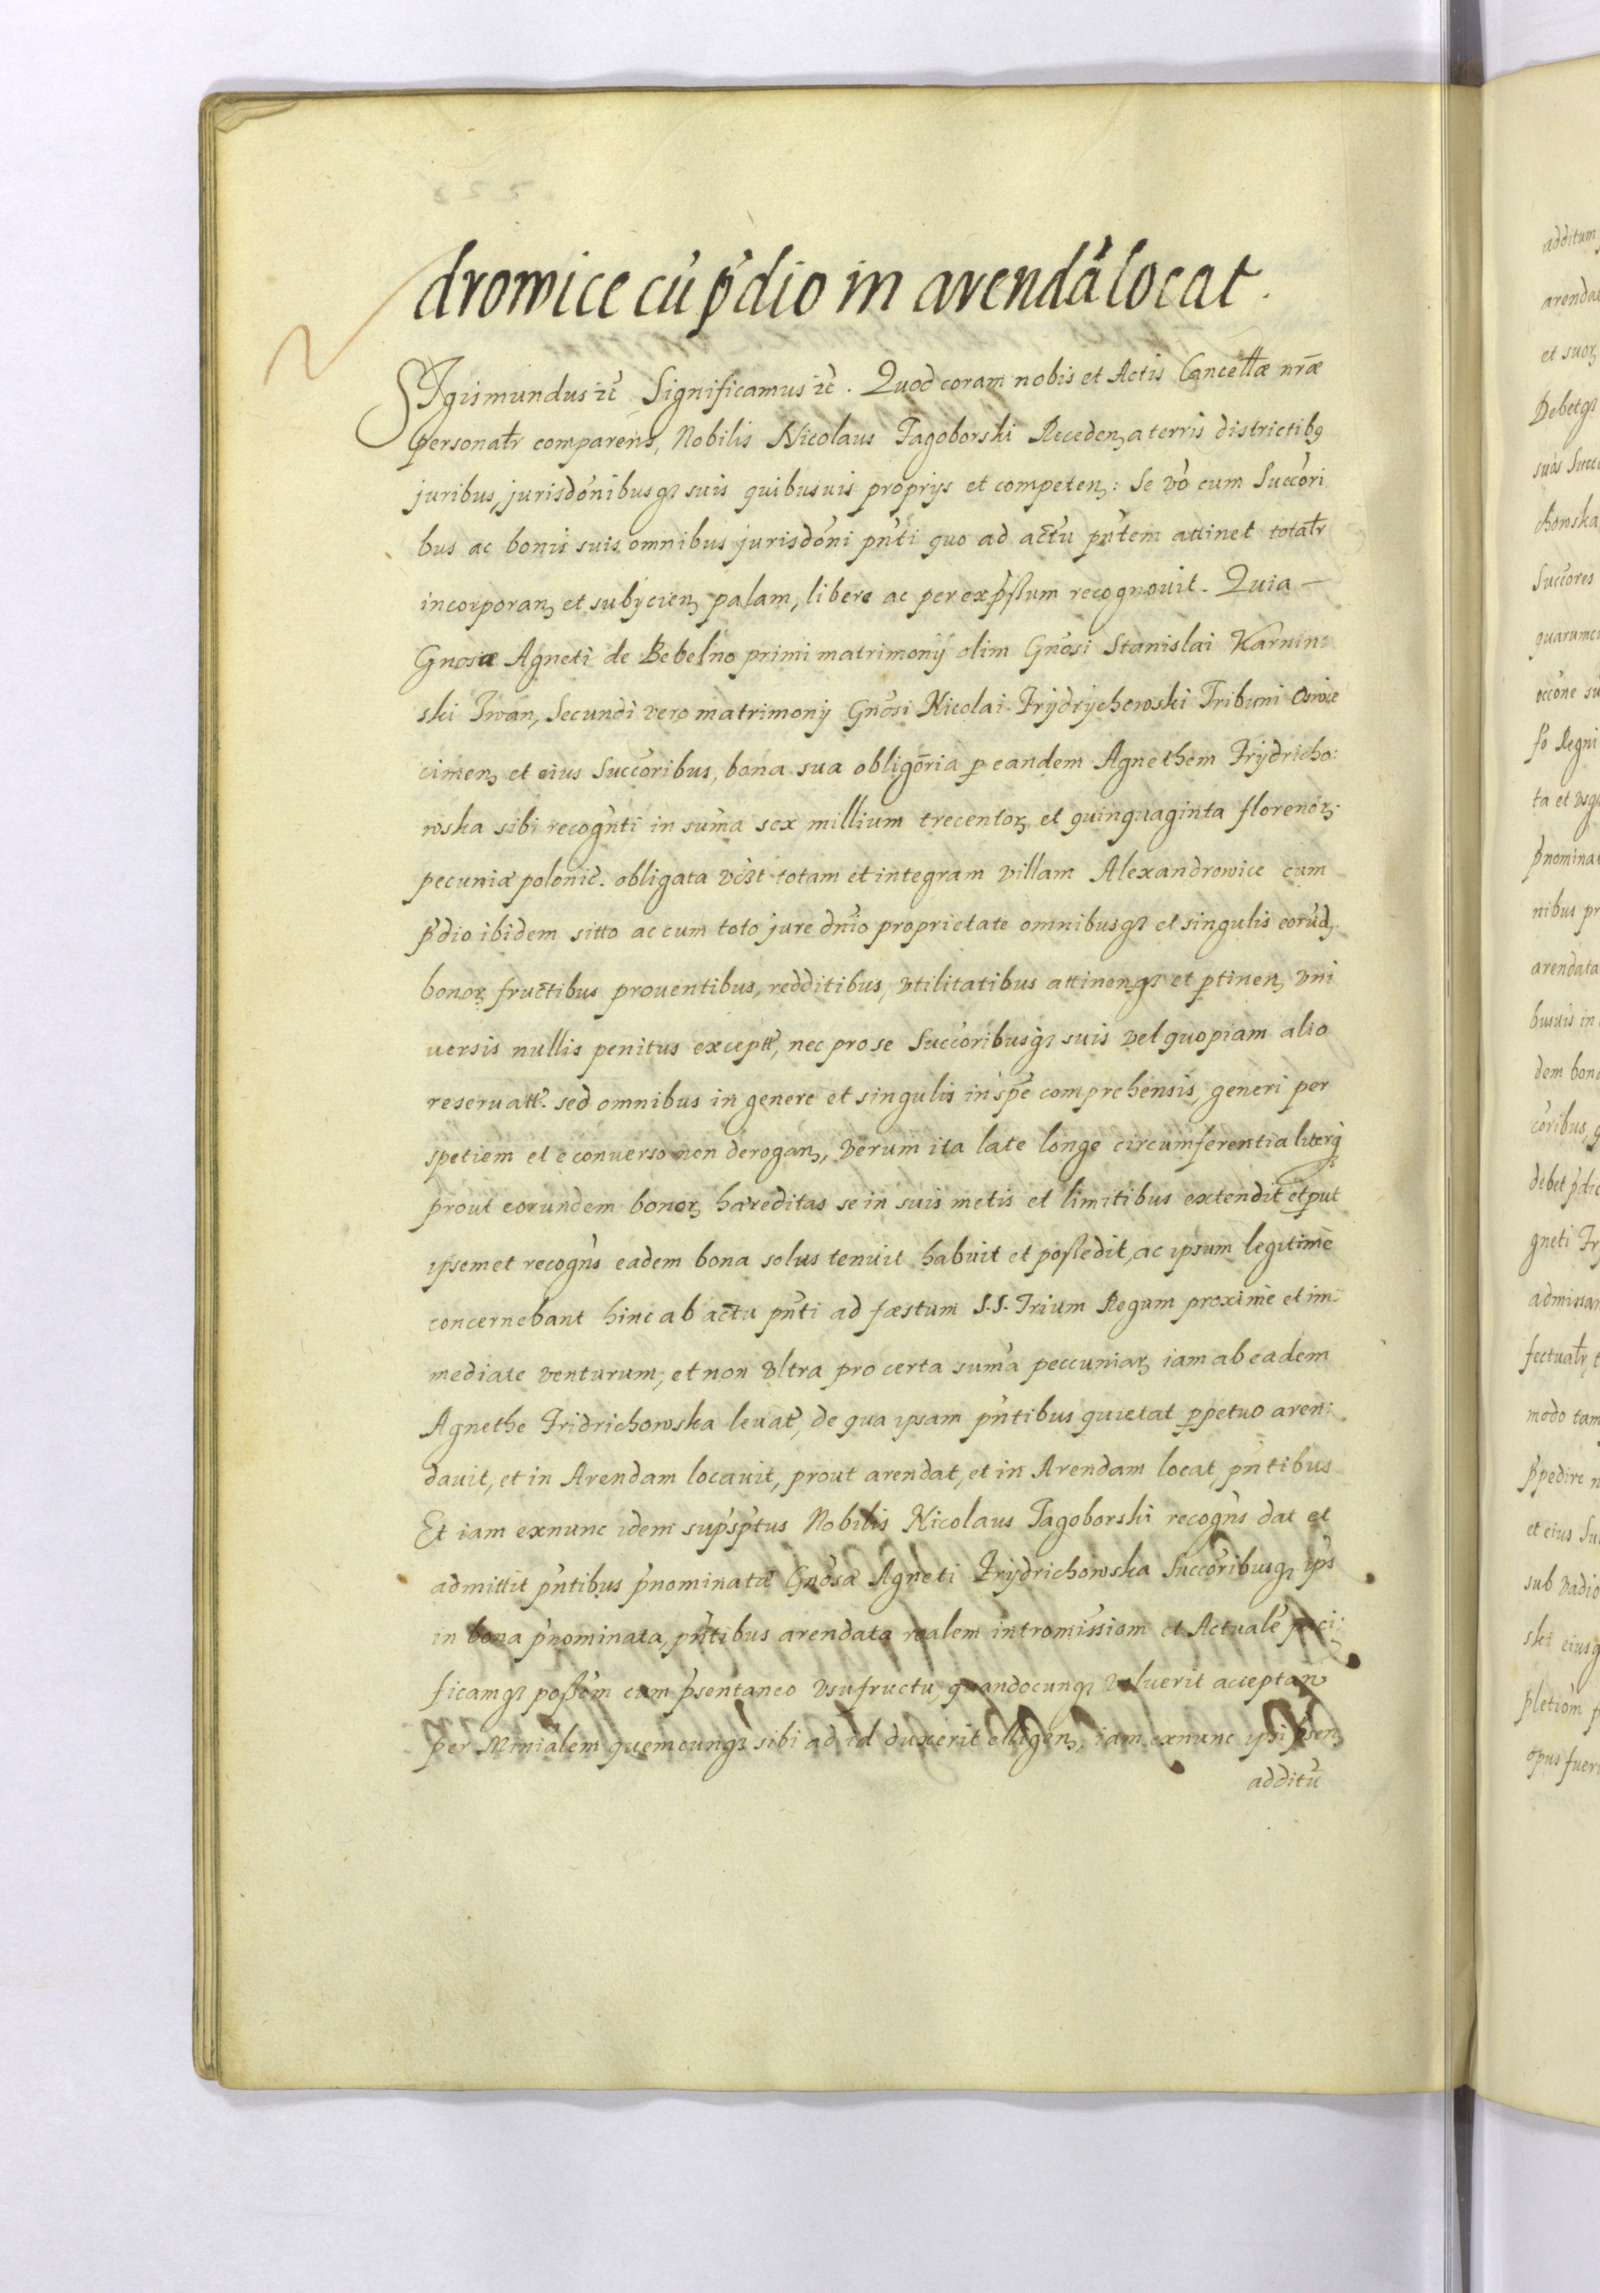 dromice cū p̃dio in arendā locat.
SIgismundus ꝛc̃ Significamus ꝛc̃. Quod coram nobis et Actis Cancellæ nr̃æ
personalr̃ comparens, Nobilis Nicolaus Tagoborski Recedenꝫ a terris districtibꝰ
juribus, jurisdõnibusqꝫ suis quibusuis proprys et competenꝫ: Se võ cum Succori
bus ac bonis suis omnibus jurisdõni pñti quo ad actũ pñtem attinet totalr̃
incorporanꝫ et subycienꝫ palam, libere ac per exp̃ssum recognouit. Quia
Gnosæ Agneti de Bebelno primi matrimonÿ olim Gñosi Stanislai Karnin:
ski Iwan, Secundi vero matrimonÿ Gñosi Nicolai Frÿdrÿchowski Tribuni Oswie
cimenꝫ et eius Succoribus, bona sua obligõria ꝑ eandem Agnethem Frÿdricho:
wska sibi recogñti in sum̃a sex millium trecentoꝝ et quinquaginta florenoꝝ.
pecuniæ polonic̃. obligata vc̃zt totam et integram villam Alexandrowice cum
p̃dio ibidem sitto ac cum toto jure dñio proprietate omnibusqꝫ et singulis eorũdꝫ
bonoꝝ fructibus prouentibus, redditibus, vtilitatibus attinenꝫqꝫ et ꝑtinenꝫ vni
uersis nullis penitus exceptt̃, nec pro se Succoribusqꝫ suis vel quopiam alio
reseruatt̃. sed omnibus in genere et singulis in spẽ comprehensis, generi per
spetiem et e conuerso non deroganꝫ, verum ita late longe circumferentialiterqꝫ
prout eorundem bonoꝝ hæreditas se in suis metis et limitibus extendit et put
ipsemet recogñs eadem bona solus tenuit habuit et possedit, ac ipsum legitimè
concernebant hinc ab actu pñti ad fæstum S.S. Trium Regum proximè et im:
mediate venturum, et non vltra pro certa sum̃a peccuniaꝝ iam ab eadem
Agnethe Fridrichowska leuat̃, de qua ipsam pñtibus quietat ꝑpetuo aren:
dauit, et in Arendam locauit, prout arendat, et in Arendam locat pñtibus
Et iam exnunc idem sup̃sp̃tus Nobilis Nicolaus Tagoborski recogñs dat et
admittit pñtibus p̃nominatæ Gñosæ Agneti Frÿdrichowska Succoribusqꝫ ips
in bona p̃nominata, pñtibus arendata realem intromissiom et Actualẽ paci:
ficamqꝫ possẽm cum p̃sentaneo vsufructu, quandocunqꝫ voluerit acceptan
per Miniãlem quemcunqꝫ sibi ad id duxerit elligenꝫ, iam exnunc ipsi p̃senꝫ
additũ